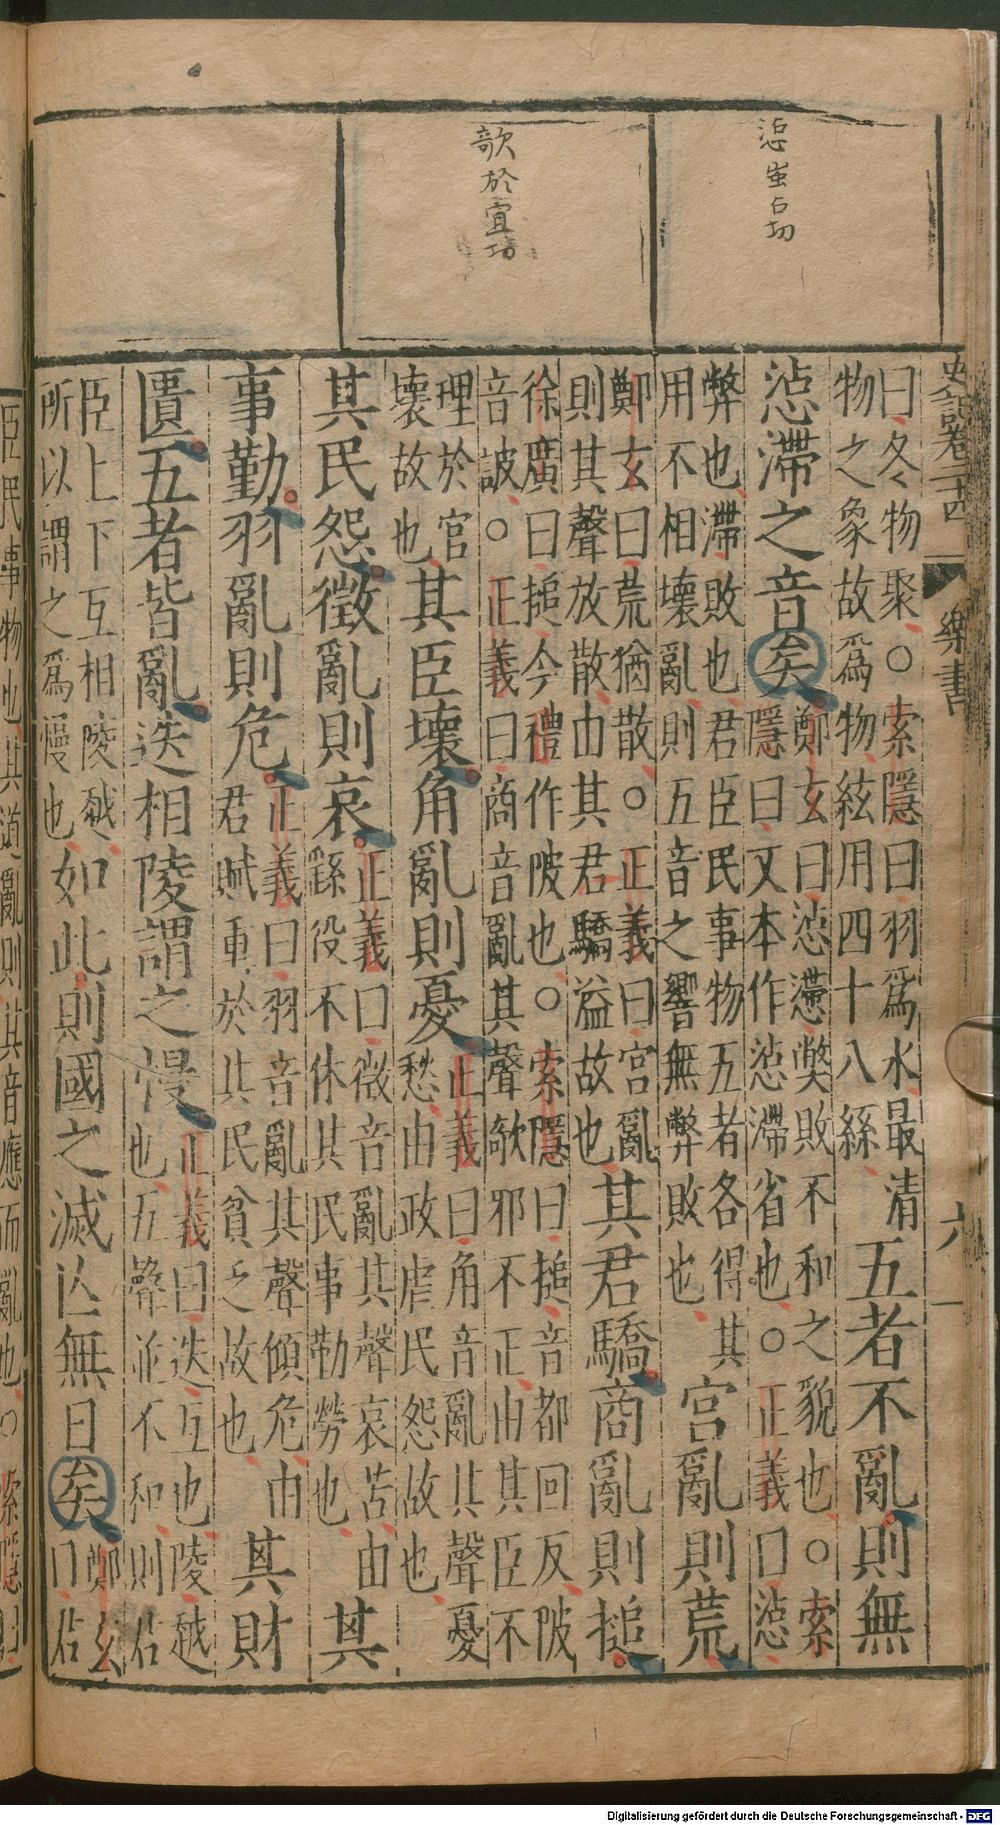 惉蚩占切
欹於宜切
史記卷二十四　樂書　六
曰冬物聚○索隱曰羽爲水最清
物之象故爲物絃用四十八絲
五者不亂則無
惉滯之音矣
鄭玄曰惉懘獘敗不和之貌也○索
隱曰又本作惉滯省也○正義曰惉
弊也滯敗也君臣民事物五者各得其
用不相壞亂則五音之響無弊敗也
宮亂則荒
鄭玄曰荒猶散○正義曰宮亂
則其聲放散由其君驕溢故也
其君驕商亂則搥
徐廣曰搥今禮作陂也○索隱曰搥音都回反陂
音詖○正義曰商音亂其聲欹邪不正由其臣不
理於官
壞故也
其臣壞角亂則憂
正義曰角音亂其聲憂
愁由政虐民怨故也
其民怨徵亂則哀
正義曰徵音亂其聲哀苦由
繇役不休其民事勤勞也
其
事勤羽亂則危
正義曰羽音亂其聲傾危由
君賦重於其民貧乏故也
其財
匱五者皆亂迭相陵謂之慢
正義曰迭互也陵越
也五聲並不和則君
臣上下互相陵越
所以謂之爲慢也
如此則國之滅亡無日矣
鄭玄
曰君
臣民事物也其道亂則其音應而亂也○索隱曰
Digitalisierung gefördert durch die Deutsche Forschungsgemeinschaft - DFG